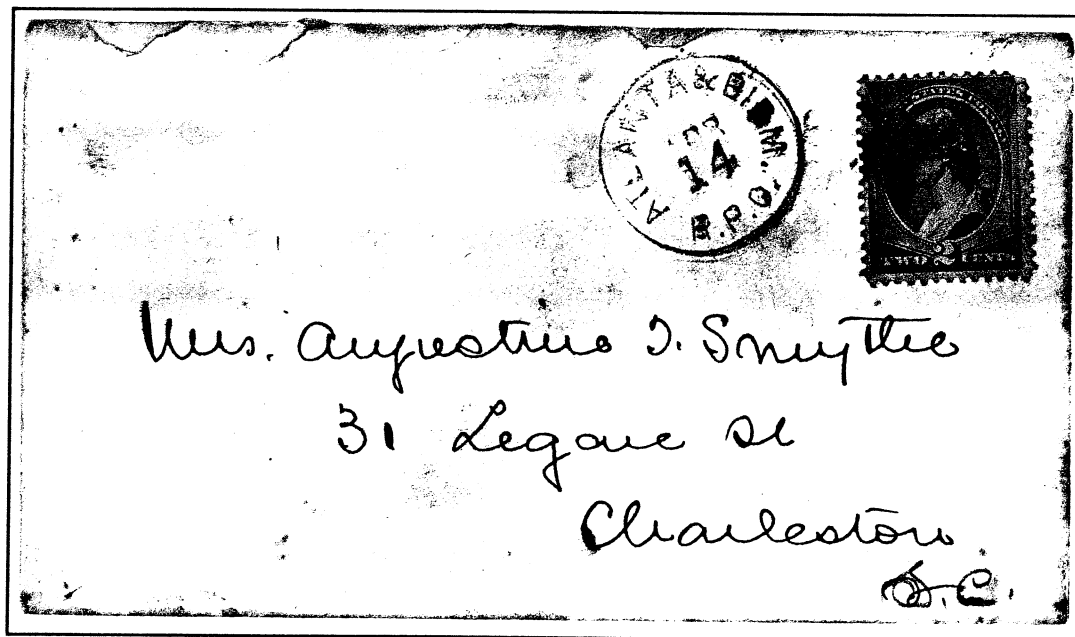 ATLANTA & BIRM.
14
R.P.O.
TWO 2 CENTS
Mrs. Augustine T. Smythe
31 Legare St
Charleston
S.C.